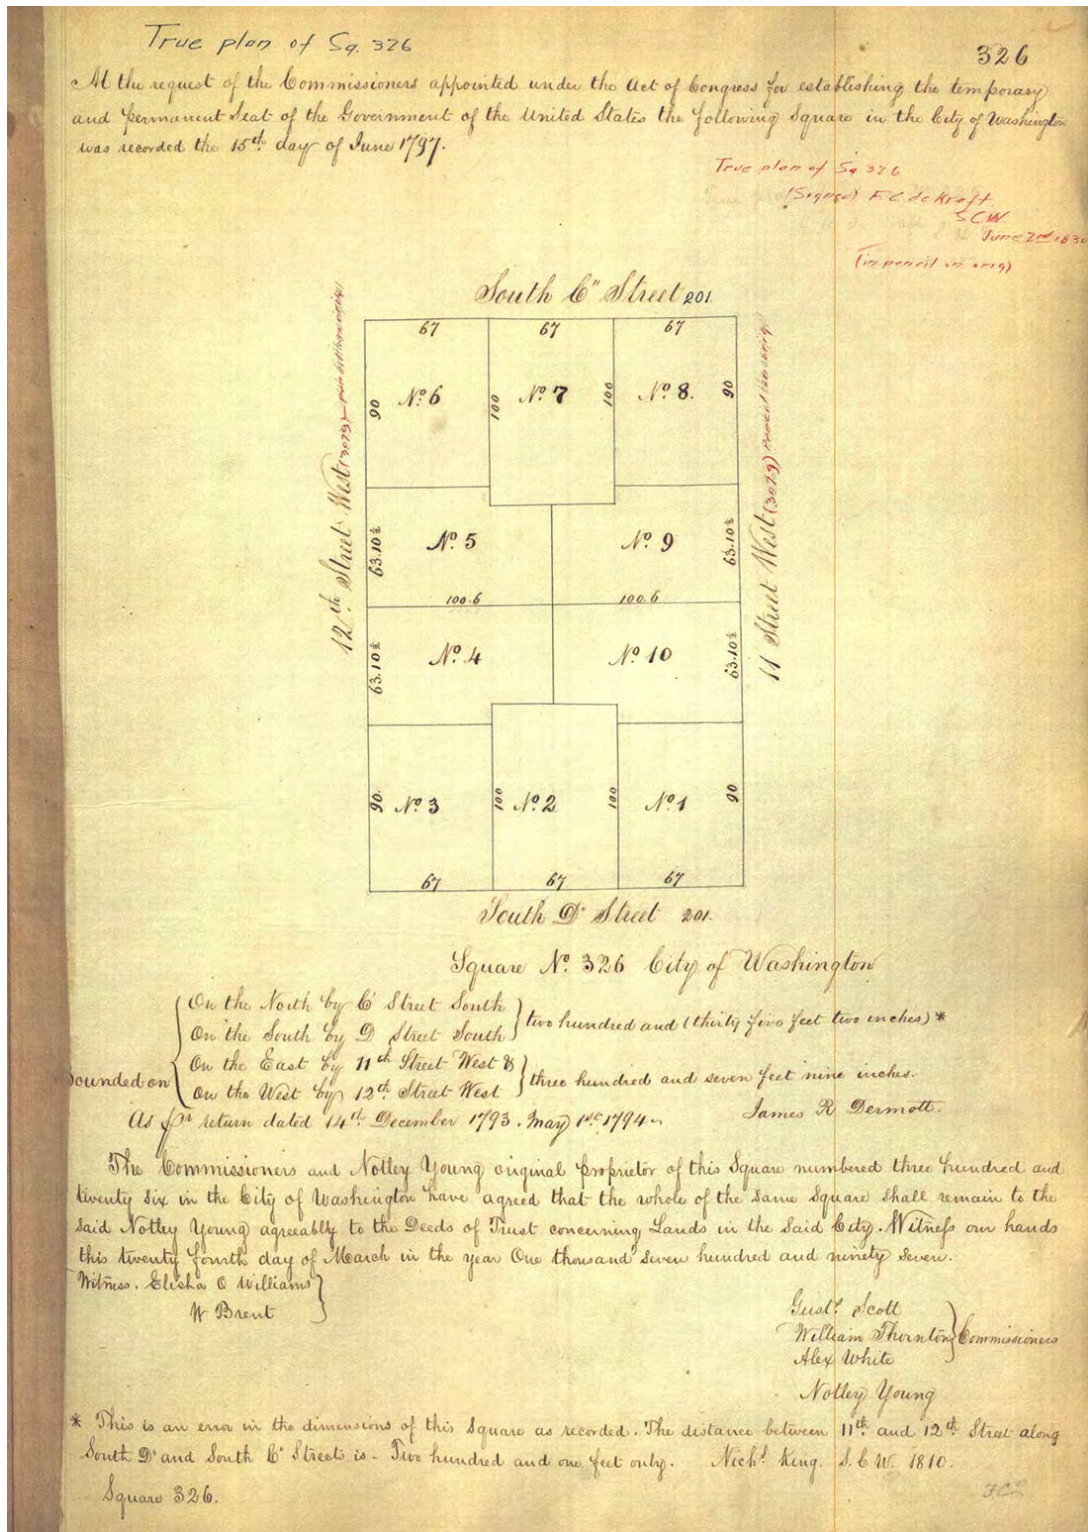 True plan of Sq. 326
326
At the request of the Commissioners appointed under the Act of Congress for establishing the temporary
and permanent Seat of the Government of the United States the following Square in the City of Washington
was recorded the 15th day of June 1797.
True plan of Sq 326
(Signed) F C de Kraft
S C W.
June 2nd 1830
(in pencil in orig)
South C" Street 201.
67 67 67
No. 6 No. 7 No. 8.
90 100 100 90
12th Street West (307.9)
11 Street West (307.9)
No. 5 No. 9
63.10½ 63.10½
100.6 100.6
No. 4 No. 10
63.10½ 63.10½
No. 3 No. 2 No. 1
90. 100 100 90
67 67 67
South D" Street 201.
Square No. 326 City of Washington
Bounded on
On the North by C" Street South
On the South by D Street South } two hundred and (thirty five feet two inches) *
On the East by 11th Street West &
On the West by 12th Street West } three hundred and seven feet nine inches.
As pr return dated 14th December 1793. May 1st 1794
James R Dermott.
The Commissioners and Notley Young original proprietor of this Square numbered three hundred and
twenty six in the City of Washington have agreed that the whole of the same Square shall remain to the
said Notley Young agreeably to the Deeds of Trust concerning Lands in the said City. Witness our hands
this twenty fourth day of March in the year One thousand seven hundred and ninety seven.
Witness. Elisha O Williams
W Brent
Gusts. Scott
William Thornton } Commissioners
Alex White
Notley Young
* This is an error in the dimensions of this Square as recorded. The distance between 11th and 12th Street along
South D" and South C" Streets is - Two hundred and one feet only. Nichs. King. S. C W. 1810.
Square 326.